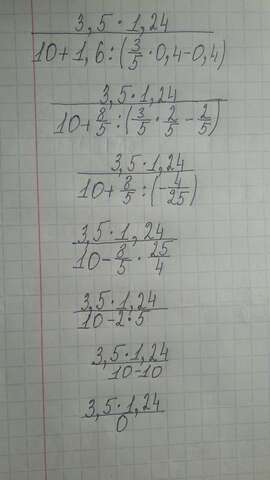 3,5·1,24
10+1,6:(3/5·0,4-0,4)
3,5·1,24
10+8/5:(3/5·2/5-2/5)
3,5·1,24
10+8/5:(-4/25)
3,5·1,24
10-8/5·25/4
3,5·1,24
10-2·5
3,5·1,24
10-10
3,5·1,24
0